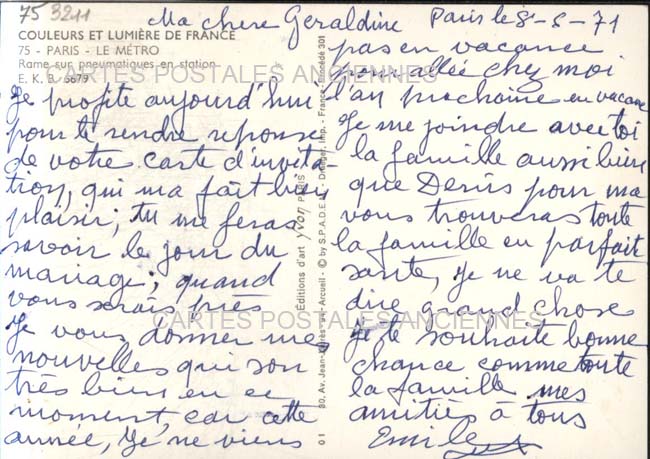 75 3211
Ma chere Geraldine Paris le 8-8-71
COULEURS ET LUMIÈRE DE FRANCE
75 - PARIS - LE MÉTRO
Rame sur pneumatiques en station
E. K. B. 6679
CARTES POSTALES ANCIENNES
Je profite aujourd'hui
pour te rendre reponse
de votre carte d'invita-
tion, qui m'a fait bien
plaisir; tu me feras
savoir le jour du
mariage; quand
vous serais près
Je vous donner me
nouvelles qui son
très bien en ce
moment, car cette
année, Je ne viens
Éditions d'art yvon PARIS
30, Av. Jean-Jaurès, sur Arcueil - © by S.P.A.D.E.M. Draeger, Imp. - France Procédé 301
01
pas en vacance
allée chez moi
l'an prochaine en vacance
Je me joindre avec toi
la famille aussi bien
que Denis pour ma
vous trouveras toute
la famille en parfait
sante, Je ne va te
dire grand chose
Je te souhaite bonne
chance comme toute
la famille mes
amitiés à tous
Emile
CARTES POSTALES ANCIENNES